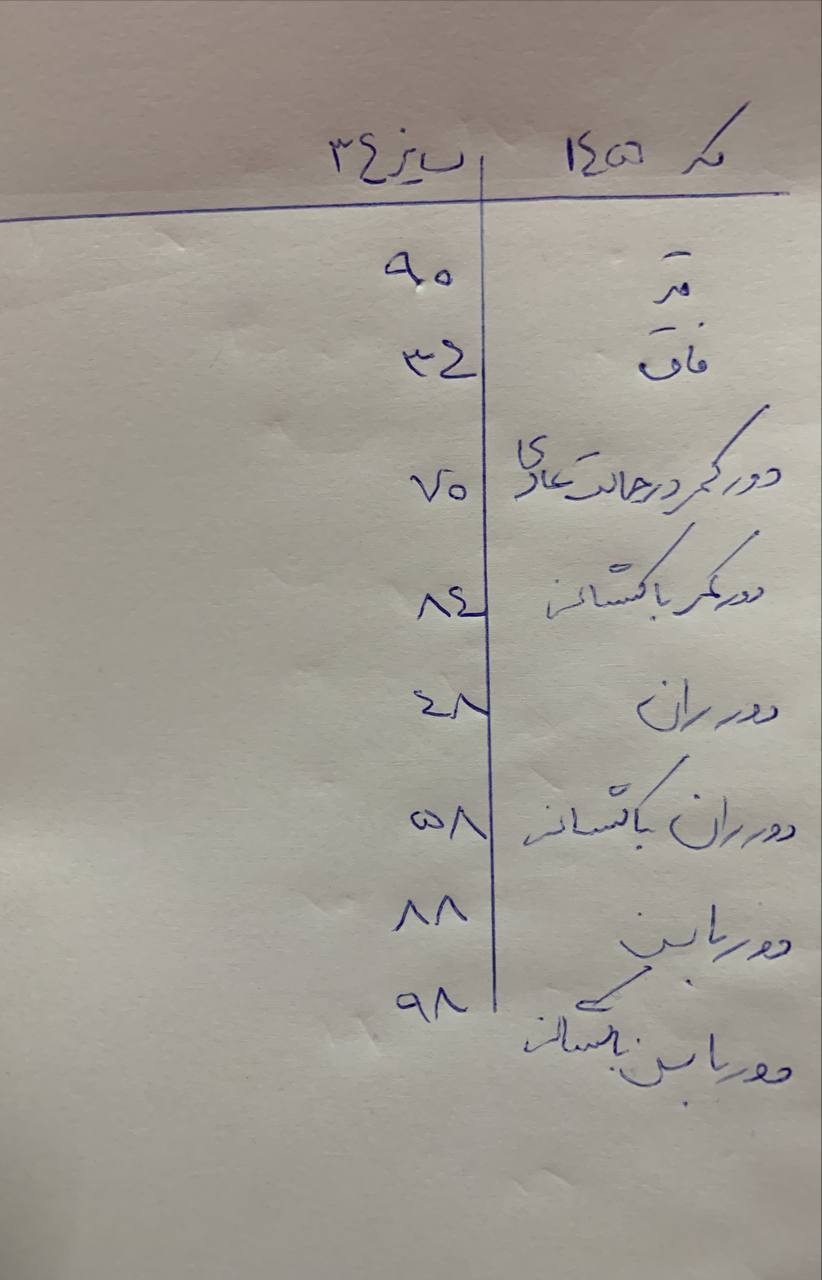 کد ۱۴۵۵ سایز ۳۴
قد ۹۰
فاق ۳۴
دور کمر در حالت عادی ۷۰
دور کمر با کشسانی ۸۴
دور ران ۴۸
دور ران با کشسانی ۵۸
دور باسن ۸۸
دور باسن با کشسانی ۹۸